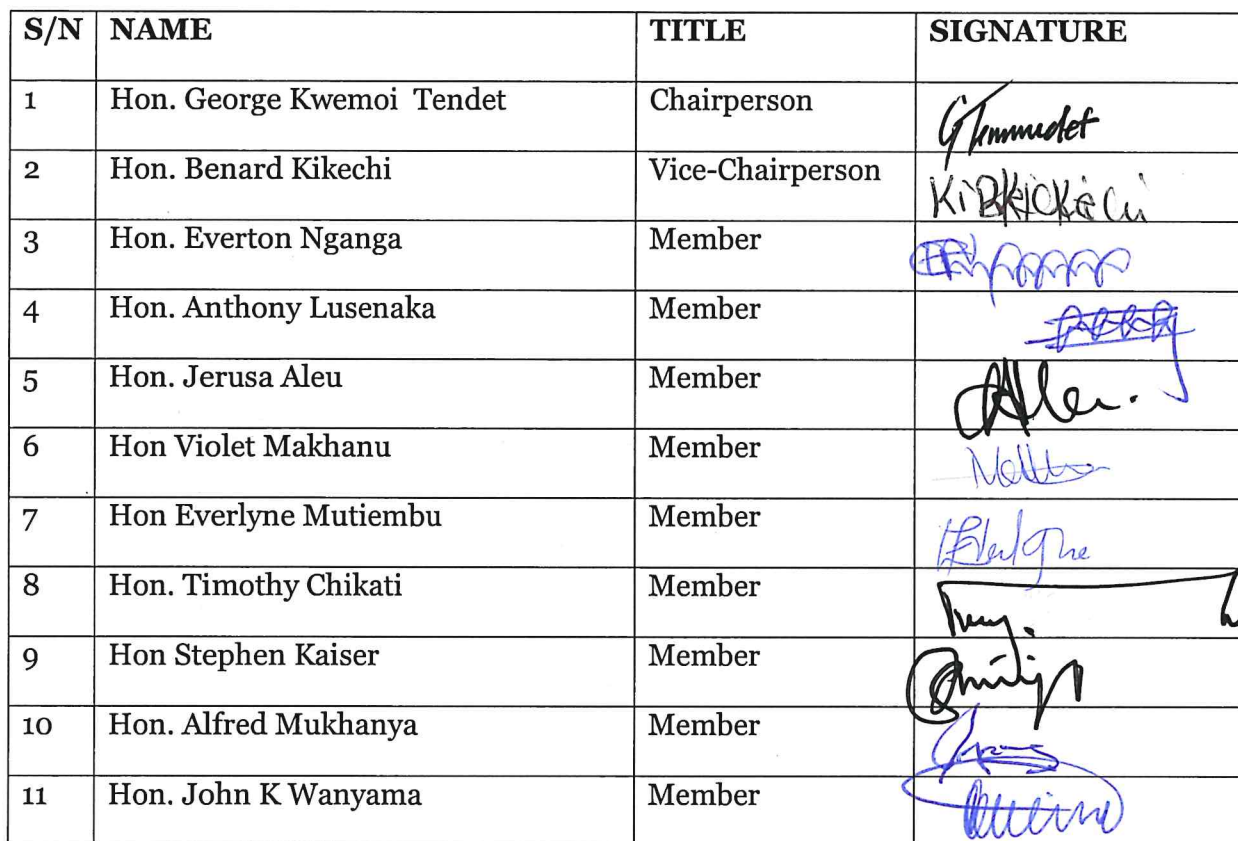 S/N NAME TITLE SIGNATURE
1 Hon. George Kwemoi Tendet Chairperson
2 Hon. Benard Kikechi Vice-Chairperson
3 Hon. Everton Nganga Member
4 Hon. Anthony Lusenaka Member
5 Hon. Jerusa Aleu Member
6 Hon Violet Makhanu Member
7 Hon Everlyne Mutiembu Member
8 Hon. Timothy Chikati Member
9 Hon Stephen Kaiser Member
10 Hon. Alfred Mukhanya Member
11 Hon. John K Wanyama Member